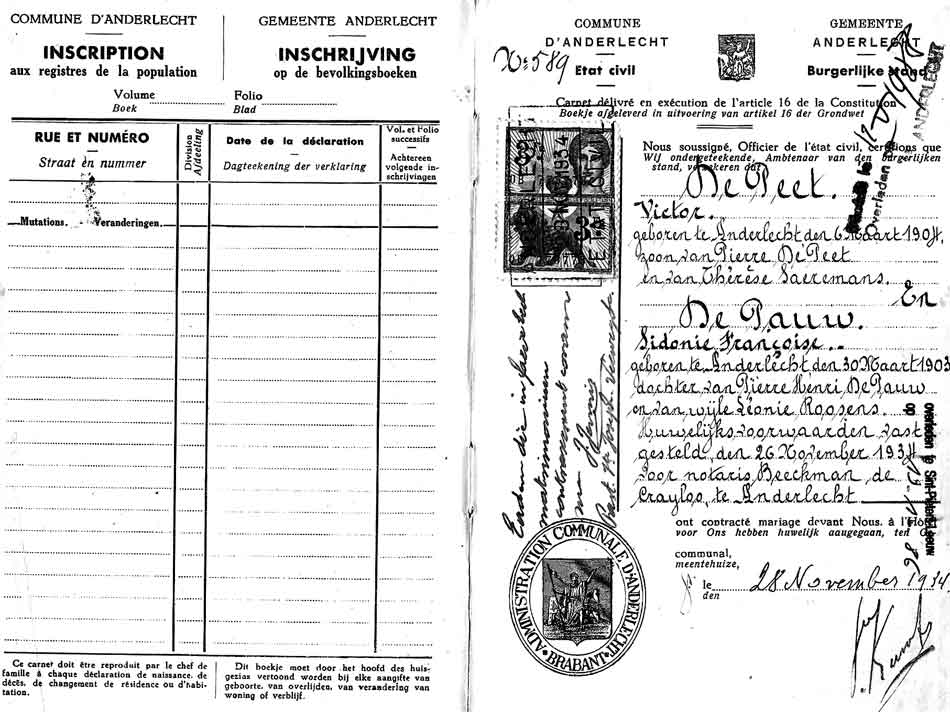 COMMUNE D'ANDERLECHT
INSCRIPTION
aux registres de la population
GEMEENTE ANDERLECHT
INSCHRIJVING
op de bevolkingsboeken
Volume Folio
Boek Blad
RUE ET NUMÉRO
Straat en nummer
Division
Afdeeling
Date de la déclaration
Dagteekening der verklaring
Vol. et Folio
successifs
Achtereen
volgende in-
schrijvingen
Mutations. Veranderingen.
Ce carnet doit être reproduit par le chef de
famille à chaque déclaration de naissance, de
décès, de changement de résidence ou d'habi-
tation.
Dit boekje moet door het hoofd des huis-
gezins vertoond worden bij elke aangifte van
geboorte, van overlijden, van verandering van
woning of verblijf.
COMMUNE
D'ANDERLECHT
Etat civil
GEMEENTE
ANDERLECHT
Burgerlijke stand
No 589
Carnet délivré en exécution de l'article 16 de la Constitution
Boekje afgeleverd in uitvoering van artikel 16 der Grondwet
Nous soussigné, Officier de l'état civil, certifions que
Wij ondergeteekende, Ambtenaar van den burgerlijken
stand, verzekeren dat
De Peet.
Victor.
geboren te Anderlecht den 6 Maart 1904,
zoon van Pierre De Peet
en van Thérèse Saeremans.
En
De Pauw.
Sidonie Françoise.
geboren te Anderlecht den 30 Maart 1903
dochter van Pierre Henri De Pauw
en van wijle Léonie Roosens.
Huwelijksvoorwaarden vast
gesteld, den 26 November 1934
voor notaris Beeckman de
Crayloo, te Anderlecht
ont contracté mariage devant Nous, à l'Hôt
voor Ons hebben huwelijk aangegaan, ten G
communal,
meentehuize,
le
den
28 November 1934.
ADMINISTRATION COMMUNALE D'ANDERLECHT
BRABANT
Overleden
ANDERLECHT
overleden te Sint-Pieters-Leeuw